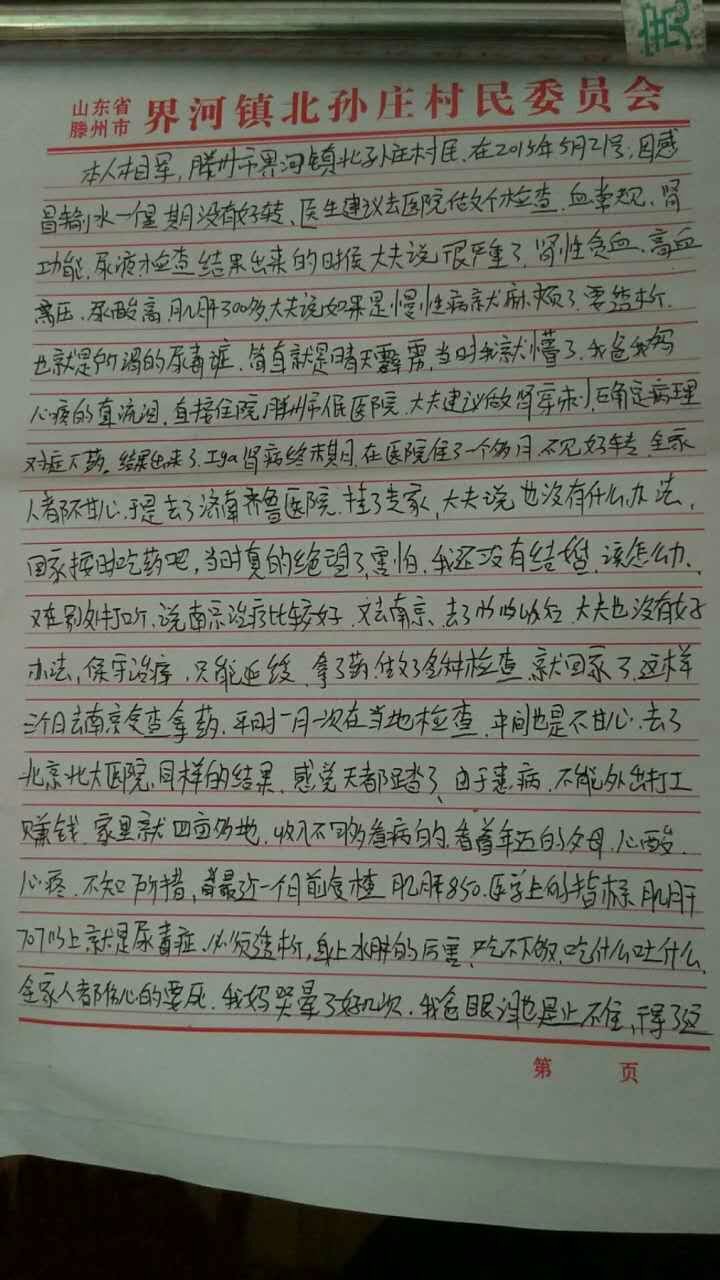 山东省
滕州市 界河镇北孙庄村民委员会
本人杜军，滕州市界河镇北孙庄村民、在2015年5月21号，因感
冒输水一个星期没有好转、医生建议去医院做个检查、血常规、肾
功能、尿液检查结果出来的时候大夫说很严重了、肾性贫血、高血
高压、尿酸高、肌肝300多,大夫说如果是慢性病就麻烦了、要透析、
也就是所谓的尿毒症、简直就是晴天霹雳,当时我就懵了、我爸我妈
心疼的直流泪、直接住院滕州市人民医院、大夫建议做肾穿刺、确定病理
对症下药。结果出来了、Iga肾病终末期、在医院住了一个多月、不见好转、全家
人都不甘心、于是去了济南齐鲁医院、挂了专家,大夫说也没有什么办法、
回家按时吃药吧,当时真的绝望了、害怕、我还没有结婚、该怎么办、
又在别处打听、说南京治疗比较好、又去南京、去了以后、大夫也没有好
办法,保守治疗、只能延缓、拿了药、做了各种检查、就回家了、这样
三个月去南京复查拿药、平时一月一次在当地检查、中间也是不甘心、去了
北京北大医院,同样的结果、感觉天都踏了、由于患病、不能外出打工
赚钱、家里就四亩多地、收入不够看病的、看着年迈的父母、心酸、
心疼、不知所措,最近一个月前复查肌肝850.医学上的指标肌肝
707以上就是尿毒症、必须透析,身上水肿的厉害、吃不下饭、吃什么吐什么、
全家人都伤心的要死、我妈哭晕了好几次、我爸眼泪也是止不住,得了这
第 页